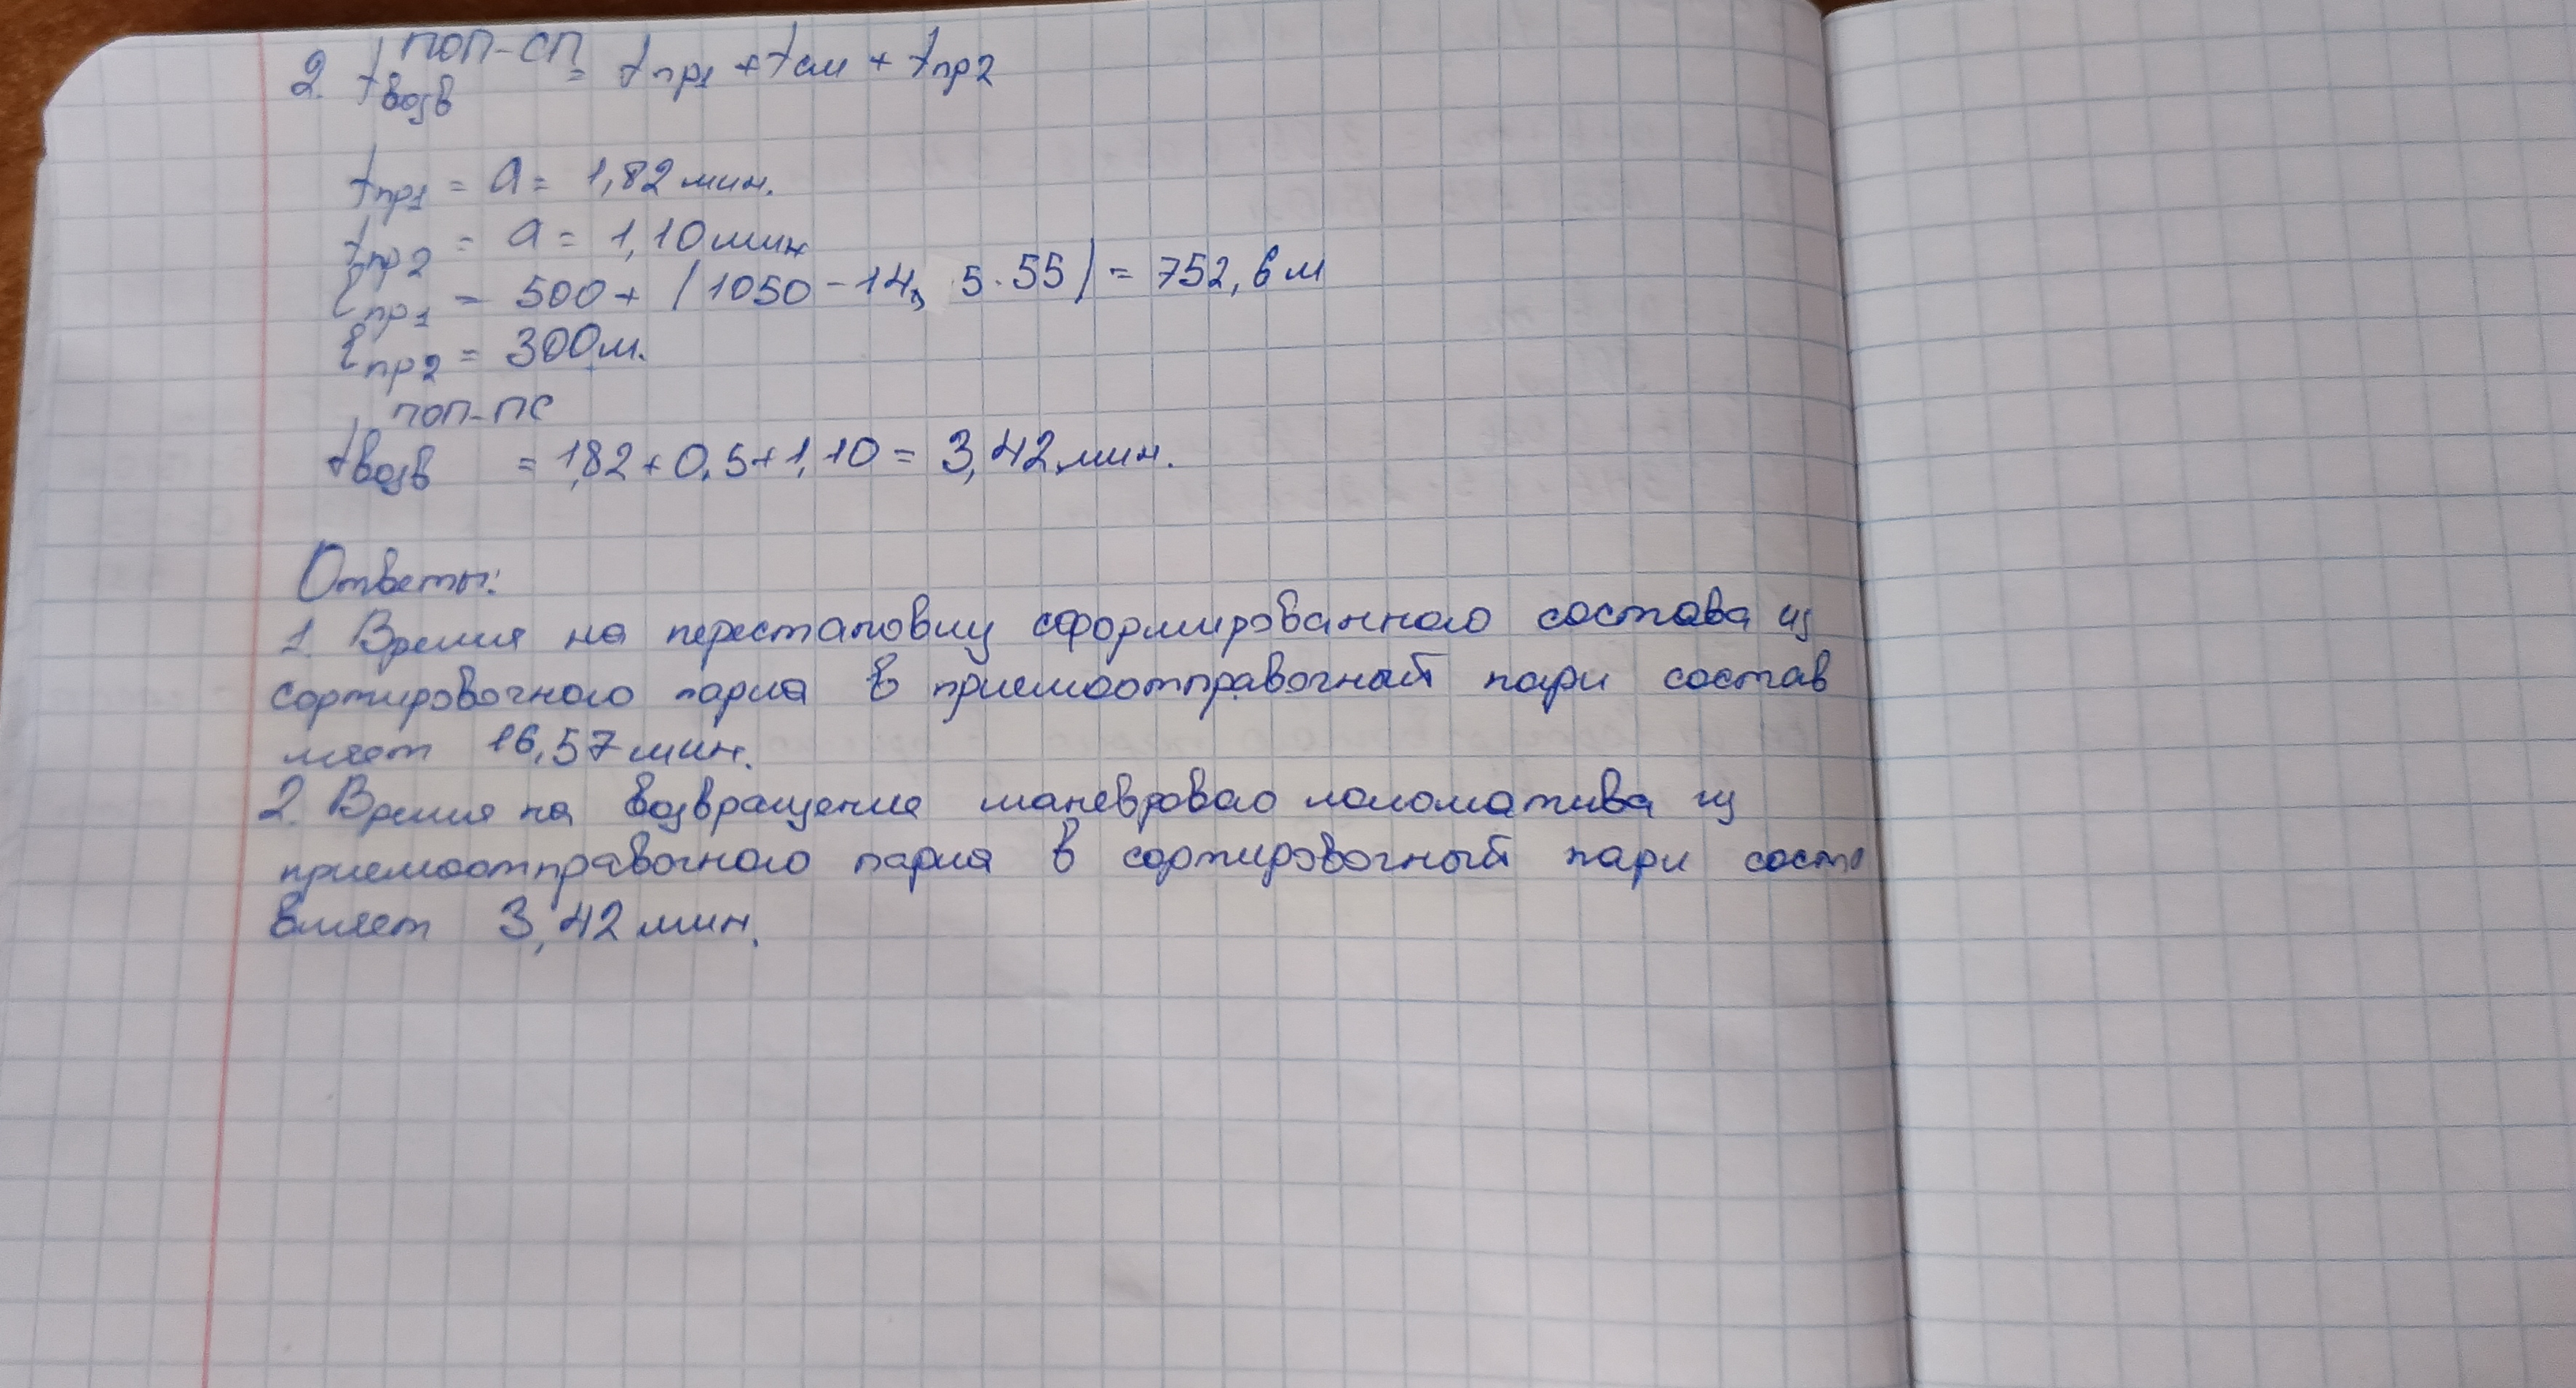 2. t возв ПОП-СП = t пр1 + t см + t пр2
t пр1 = a = 1,82 мин.
t пр2 = a = 1,10 мин
l пр1 = 500 + (1050 - 14, 5 · 55) = 752,6 м
l пр2 = 300 м.
t возв ПОП-ПС = 1,82 + 0,5 + 1,10 = 3,42 мин.
Ответы:
1. Время на перестановку сформированного состава из
сортировочного парка в приемоотправочный парк состав
ляет 16,57 мин.
2. Время на возвращение маневровао локоматива из
приемоотправочного парка в сортировочный парк соста
вляет 3,42 мин.